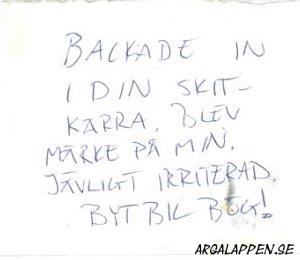 BACKADE IN
I DIN SKIT-
KÄRRA. BLEV
MÄRKE PÅ MIN.
JÄVLIGT IRRITERAD.
BYT BIL BÖG!
ARGALAPPEN.SE